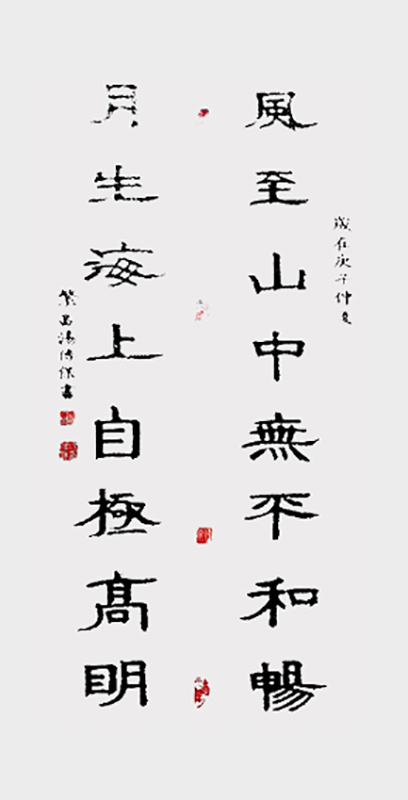 歲在庚子仲夏
風至山中無不和暢
月生海上自極髙明
繁昌湯保書